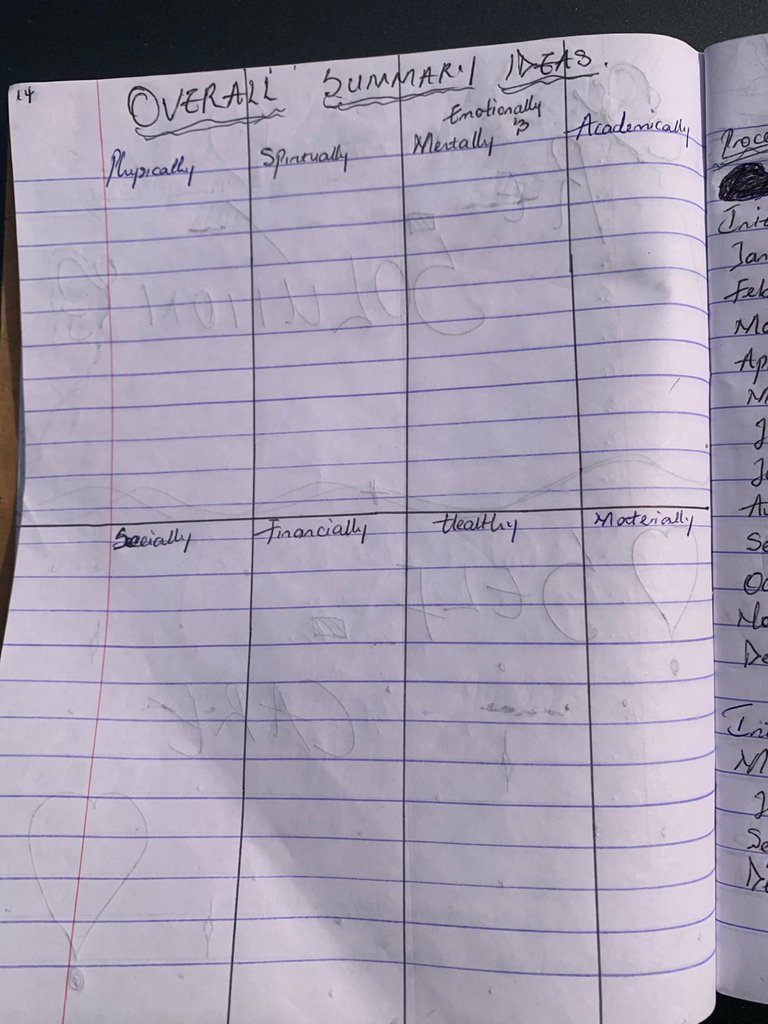 14
OVERALL SUMMARY IDEAS.
Physically
Spiritually
Emotionally
Mentally
Academically
Socially
Financially
Healthy
Materially
SOLUTION
SELF
CARE
Proce
Jan
Feb
Ma
Ap
M
J
Ju
Au
Se
Oc
No
De
M
J
Se
De